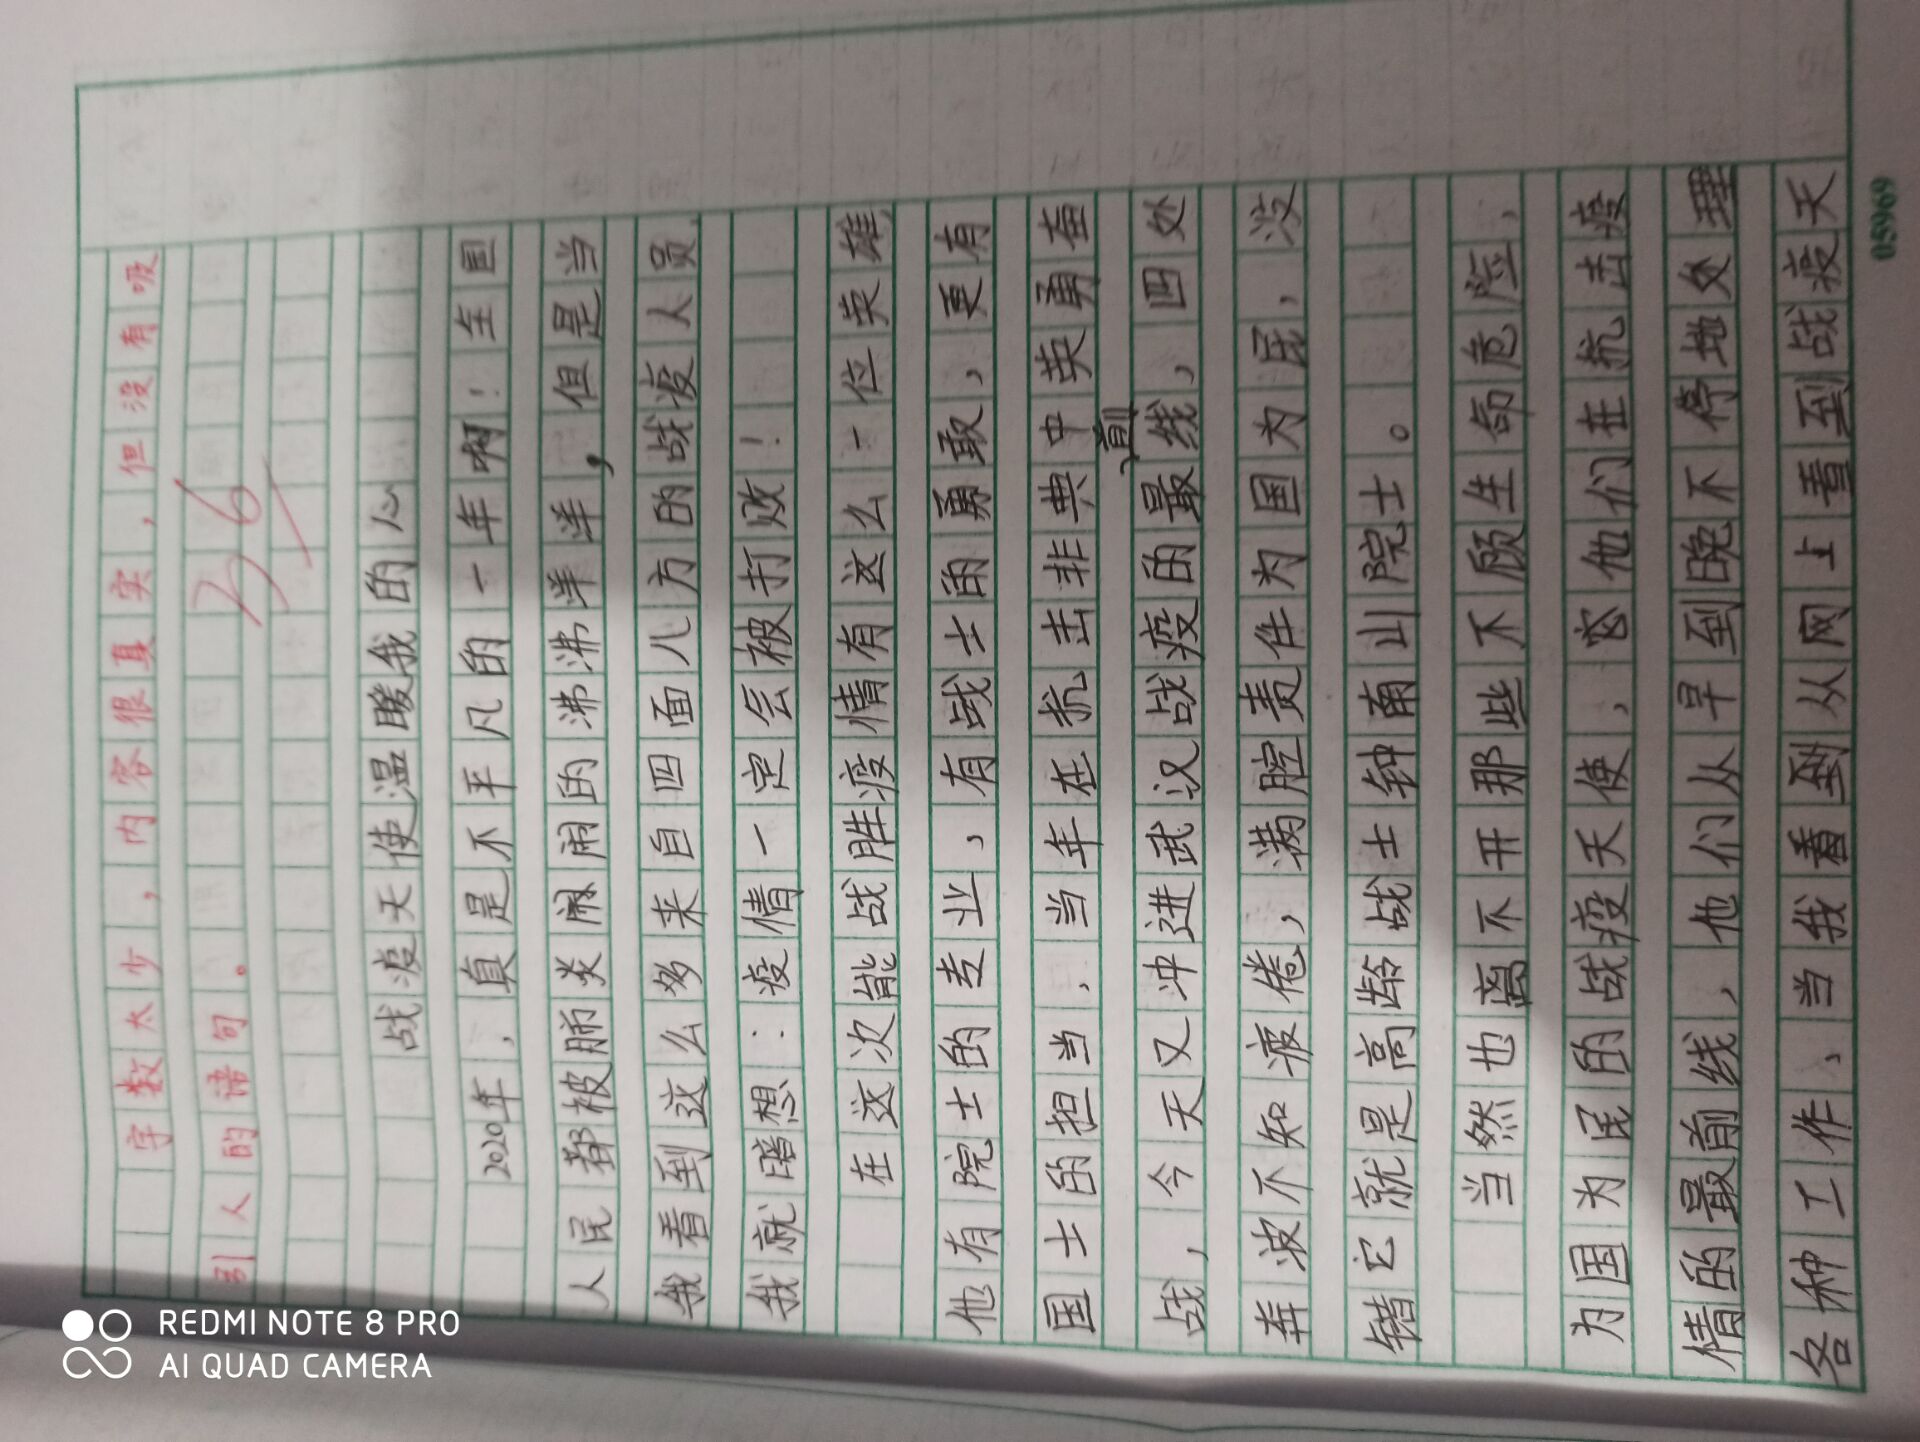 字数太少，内容很真实，但没有吸
引人的语句。
36
战疫天使温暖我的心
2020年，真是不平凡的一年啊！全国
人民都被肺炎闹闹的沸沸洋洋，但是当
我看到这么多来自四面儿方的战疫人员，
我就暗想：疫情一定会被打败！
在这次能战胜疫情有这么一位英雄，
他有院士的专业，有战士的勇敢，更有
国士的担当，当年在抗击非典中英勇奋
战，今天又冲进武汉战疫的最前线，四处
奔波不知疲倦，满腔责任为国为民，没
错它就是高龄战士钟南山院士。
当然也离不开那些不顾生命危险，
为国为民的战疫天使，您他们在抗击疫
情的最前线，他们从早到晚不停地处理
各种工作，当我看到从网上看到战疫天
05969
REDMI NOTE 8 PRO
AI QUAD CAMERA